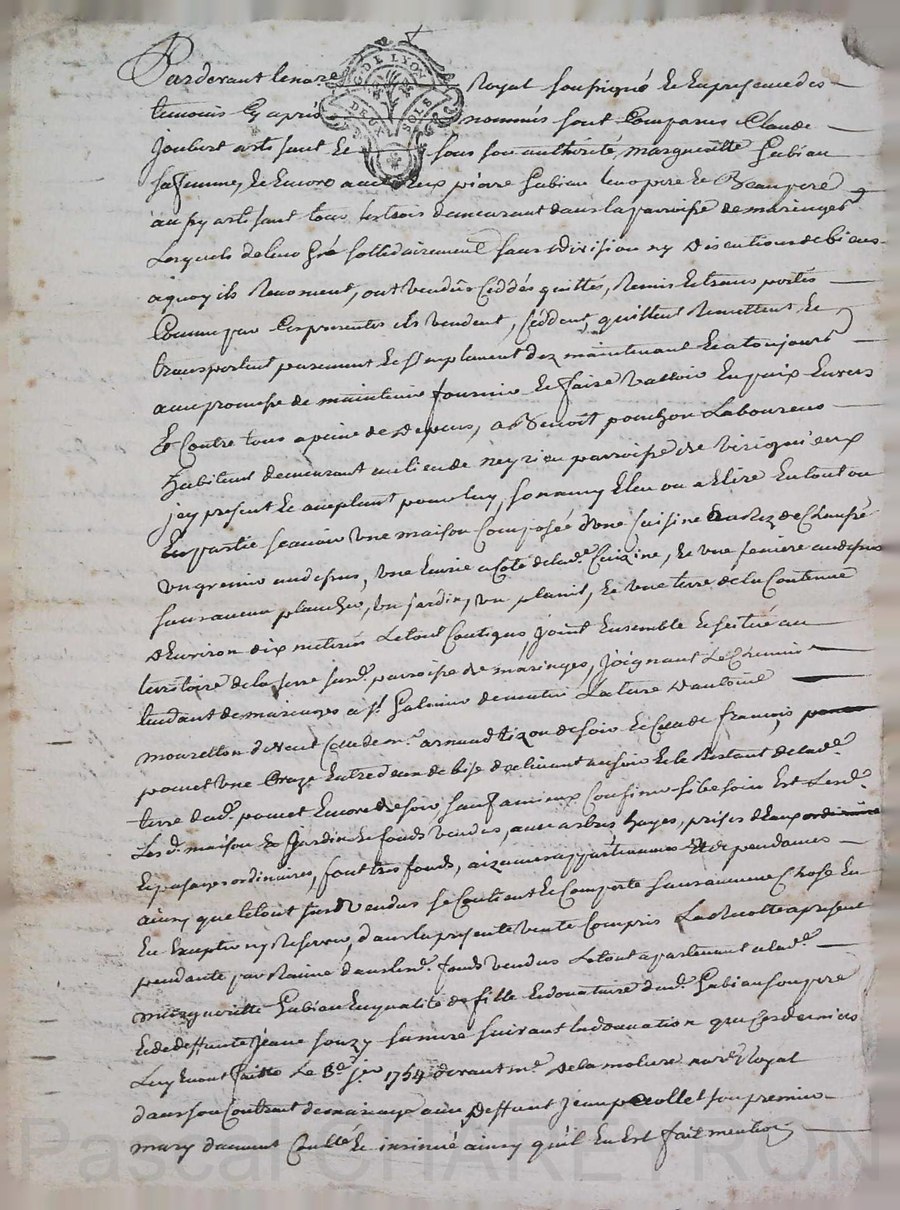 Pardevant le no.re Royal soussigné et en presence des
temoins cy apres nommés sont Comparus Claude
Joubert artisant et sous son authorité, margueritte Gubian
sa femme, et encore avec eux pierre Gubian leur pere et Beaupere
aussy artisant tous les trois demeurant dans la parroisse de maringes
Lesquels de leur Gré sollidairement sans division ny discution de biens
a quoy ils Renoncent, ont vendus Ceddés quittés, Remis et transportés
Comme par Ces presentes ils vendent, Ceddent, quittent Remettent et
transportent purement et simplement dez maintenant et a toujours
avec promesse de maintenir fournir et faire valloir En paix Envers
Et Contre tous a peine de depens, a S.r Benoit ponchon Laboureur
habitant demeurant au lieu de neyrieu parroisse de virigneux
jcy present et aceptant pour luy, son amy Eleu ou a Elire En tout ou
En partie scavoir une maison Composée d'une Cuisine au Rez de Chaussé
un grenier au dessus, une Ecurie a Coté de lad.e Cuizine, et une feniere au dessus
sans aucun plancher, un jardin, un plasit, et une terre de la Contenue
d'Environ dix meterés Le tout Contigus joint Ensemble et scitué au
territoire de la serre susd. parroisse de maringes, joignant Le Chemin
tendant de maringes a S.t Galmier de matin La terre d'antoine
mourellon de vent Celle de m.r arnaud tizon de soir et Celle de françois
poncet une Oraze Entredeux de bise declinant au soir et le Restant de lad.e
terre dud. poncet Encore de soir, sauf a mieux Confiner si besoin Est Lesd.
Lesd. maison et Jardin et fonds vendus, avec arbres hayes, prises d'Eaux ordinaire
Et passages ordinaires, fonts tres fonds, aizances appartenances et dependances
ainsy que le tout susd. vendus se Contient et Comporte sans aucune Chose En
En Exepter ny Reserver, dans la presente vente Compris La Recolte a present
pendante par Racine dans lesd. fonds vendus Le tout apartenant a lad.e
margueritte Gubian En qualité de fille Et donataire dud. Gubian son pere
Et de deffunte Jeane souzy sa mere suivant la donation que Ces derniers
Luy En ont faitte Le 8.e j.er 1754 devant m.e Delamoliere no.re Royal
dans son Contrat de mariage avec deffunt Jean pecollet son premier
mary duement Conllé Et insinué ainsy qu'il En Est fait mention
G. DE LYON
DEUX SOLS
Pascal CHAREYRON